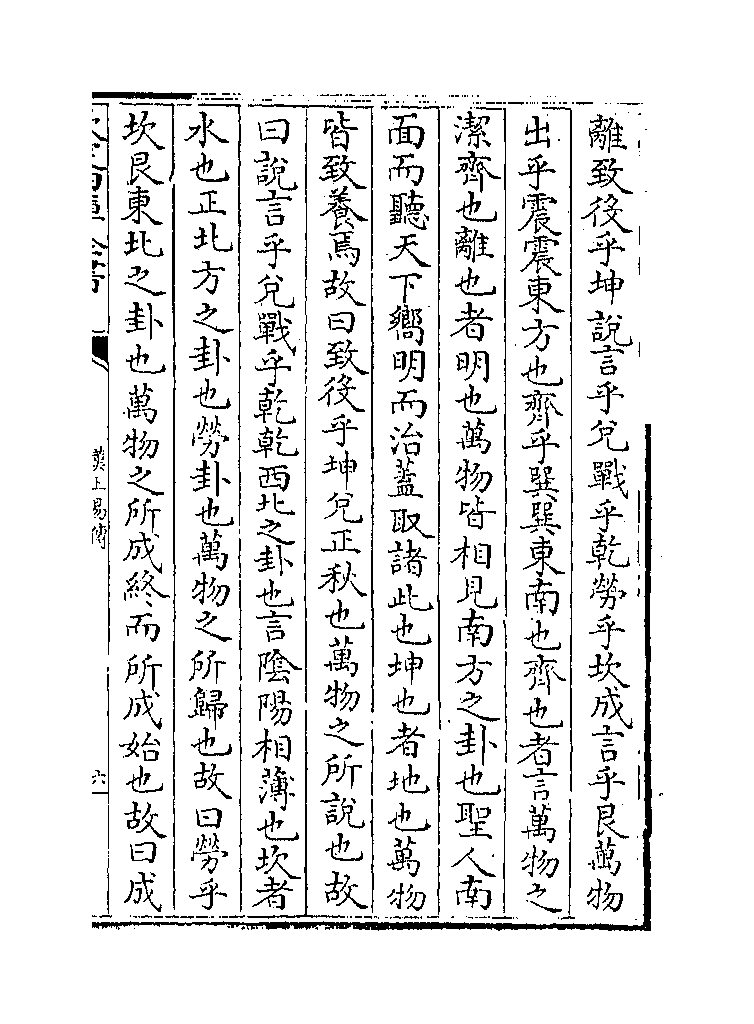 離致役乎坤說言乎兌戰乎乾勞乎坎成言乎艮萬物
出乎震震東方也齊乎巽巽東南也齊也者言萬物之
潔齊也離也者明也萬物皆相見南方之卦也聖人南
面而聽天下嚮明而治蓋取諸此也坤也者地也萬物
皆致養焉故曰致役乎坤兌正秋也萬物之所說也故
曰說言乎兌戰乎乾乾西北之卦也言陰陽相薄也坎者
水也正北方之卦也勞卦也萬物之所歸也故曰勞乎
坎艮東北之卦也萬物之所成終而所成始也故曰成
漢上易傳
六